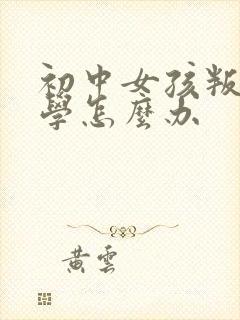 初中女孩叛
學怎麼办
黃雲